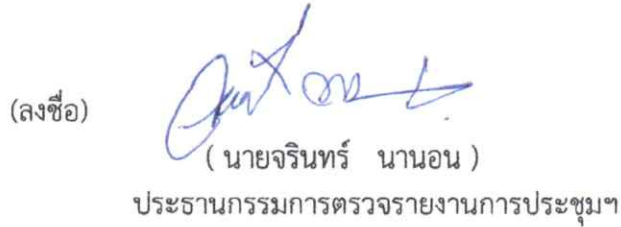 (ลงชื่อ)
( นายจรินทร์ นานอน )
ประธานกรรมการตรวจรายงานการประชุมฯ